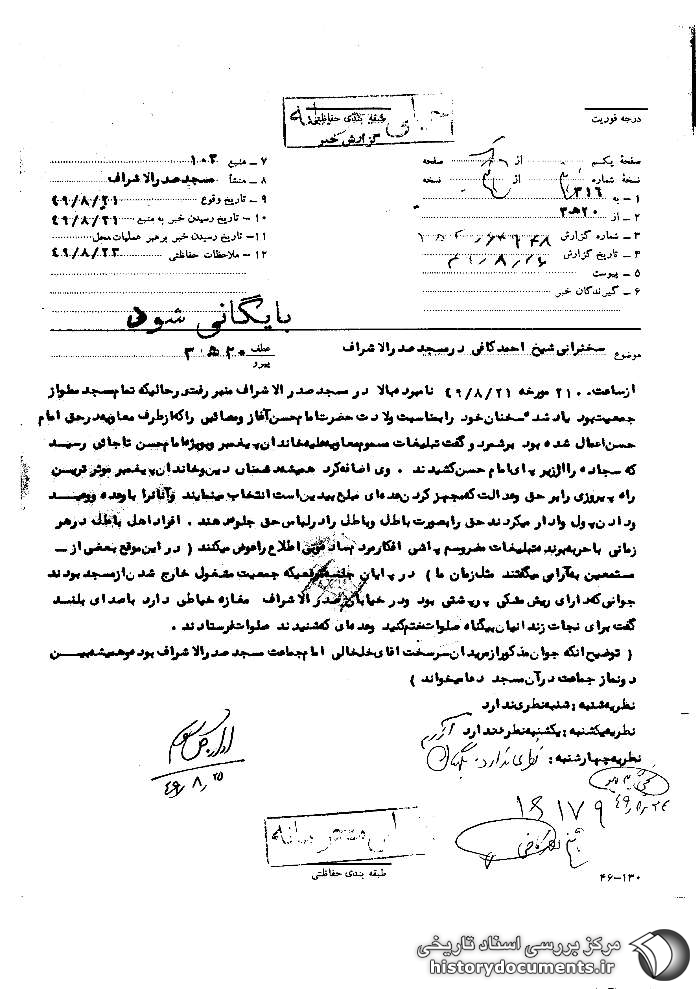 درجه فوریت
طبقه بندی حفاظتی
گزارش خبر
صفحه یکم از صفحه
نسخه شماره از نسخه
۱ – به ۳۱۶
۲ – از ۲۰ ه ۳
۳ – شماره گزارش
۴ – تاریخ گزارش ۴۹/۸/۲۶
۵ – پیوست
۶ – گیرندگان خبر
۷ – منبع ۱۰۰۳
۸ – منشأ مسجد صدر الاشراف
۹ – تاریخ وقوع ۴۹/۸/۲۱
۱۰ – تاریخ رسیدن خبر به منبع ۴۹/۸/۲۱
۱۱ – تاریخ رسیدن خبر برهبر عملیات محل
۱۲ – ملاحظات حفاظتی ۴۹/۸/۲۳
بایگانی شود
موضوع سخنرانی شیخ احمد کافی در مسجد صدر الاشراف
عطف ۲۰ ه ۳
پیرو
از ساعت ۲۱۰۰ مورخه ۴۹/۸/۲۱ نامبرده بالا در مسجد صدر الاشراف منبر رفت و در حالیکه تمام مسجد مملو از
جمعیت بود یاد شده سخنان خود را بمناسبت ولادت حضرت امام حسن آغاز و مصائبی را که از طرف معاویه در حق امام
حسن اعمال شده بود برشمرد و گفت تبلیغات مسموم معاویه علیه خاندان پیغمبر و بویژه امام حسن تا جائی رسید
که سجاده را از زیر پای امام حسن کشیدند . وی اضافه کرد همیشه دشمنان دین و خاندان پیغمبر موثرترین
راه پیروزی را بر حق وعدالت که مجهز کردن عده‌ای مبلغ بیدین است انتخاب مینمایند و آنانرا با وعده و وعید
و دادن پول وادار میکردند حق را بصورت باطل و باطل را در لباس حق جلوه دهند . افراد اهل باطل در هر
زمانی با حربه برنده تبلیغات مضر و سم پاشی افکار مردم ساده و بی اطلاع را عوض میکنند ( در این موقع بعضی از –
مستمعین به آرامی میگفتند مثل زمان ما ) در پایان جلسه در حالیکه جمعیت مشغول خارج شدن از مسجد بودند
جوانی که دارای ریش مشکی پرپشتی بود و در خیابان صدر الاشراف مغازه خیاطی دارد با صدای بلند
گفت برای نجات زندانیان بیگناه صلوات ختم کنید و عده‌ای که شنیدند صلوات فرستادند .
( توضیح آنکه جوان مذکور از مریدان سرسخت آقای خلخالی امام جماعت مسجد صدر الاشراف بوده و همیشه بین
دو نماز جماعت در آن مسجد دعا میخواند )
نظریه شنبه : شنبه نظری ندارد
نظریه یکشنبه : یکشنبه نظری ندارد
نظریه چهارشنبه : نظری ندارد
۴۹/۸/۲۵
۱۸۱۷۹
طبقه بندی حفاظتی
۴۶–۱۳۰
مرکز بررسی اسناد تاریخی
historydocuments.ir